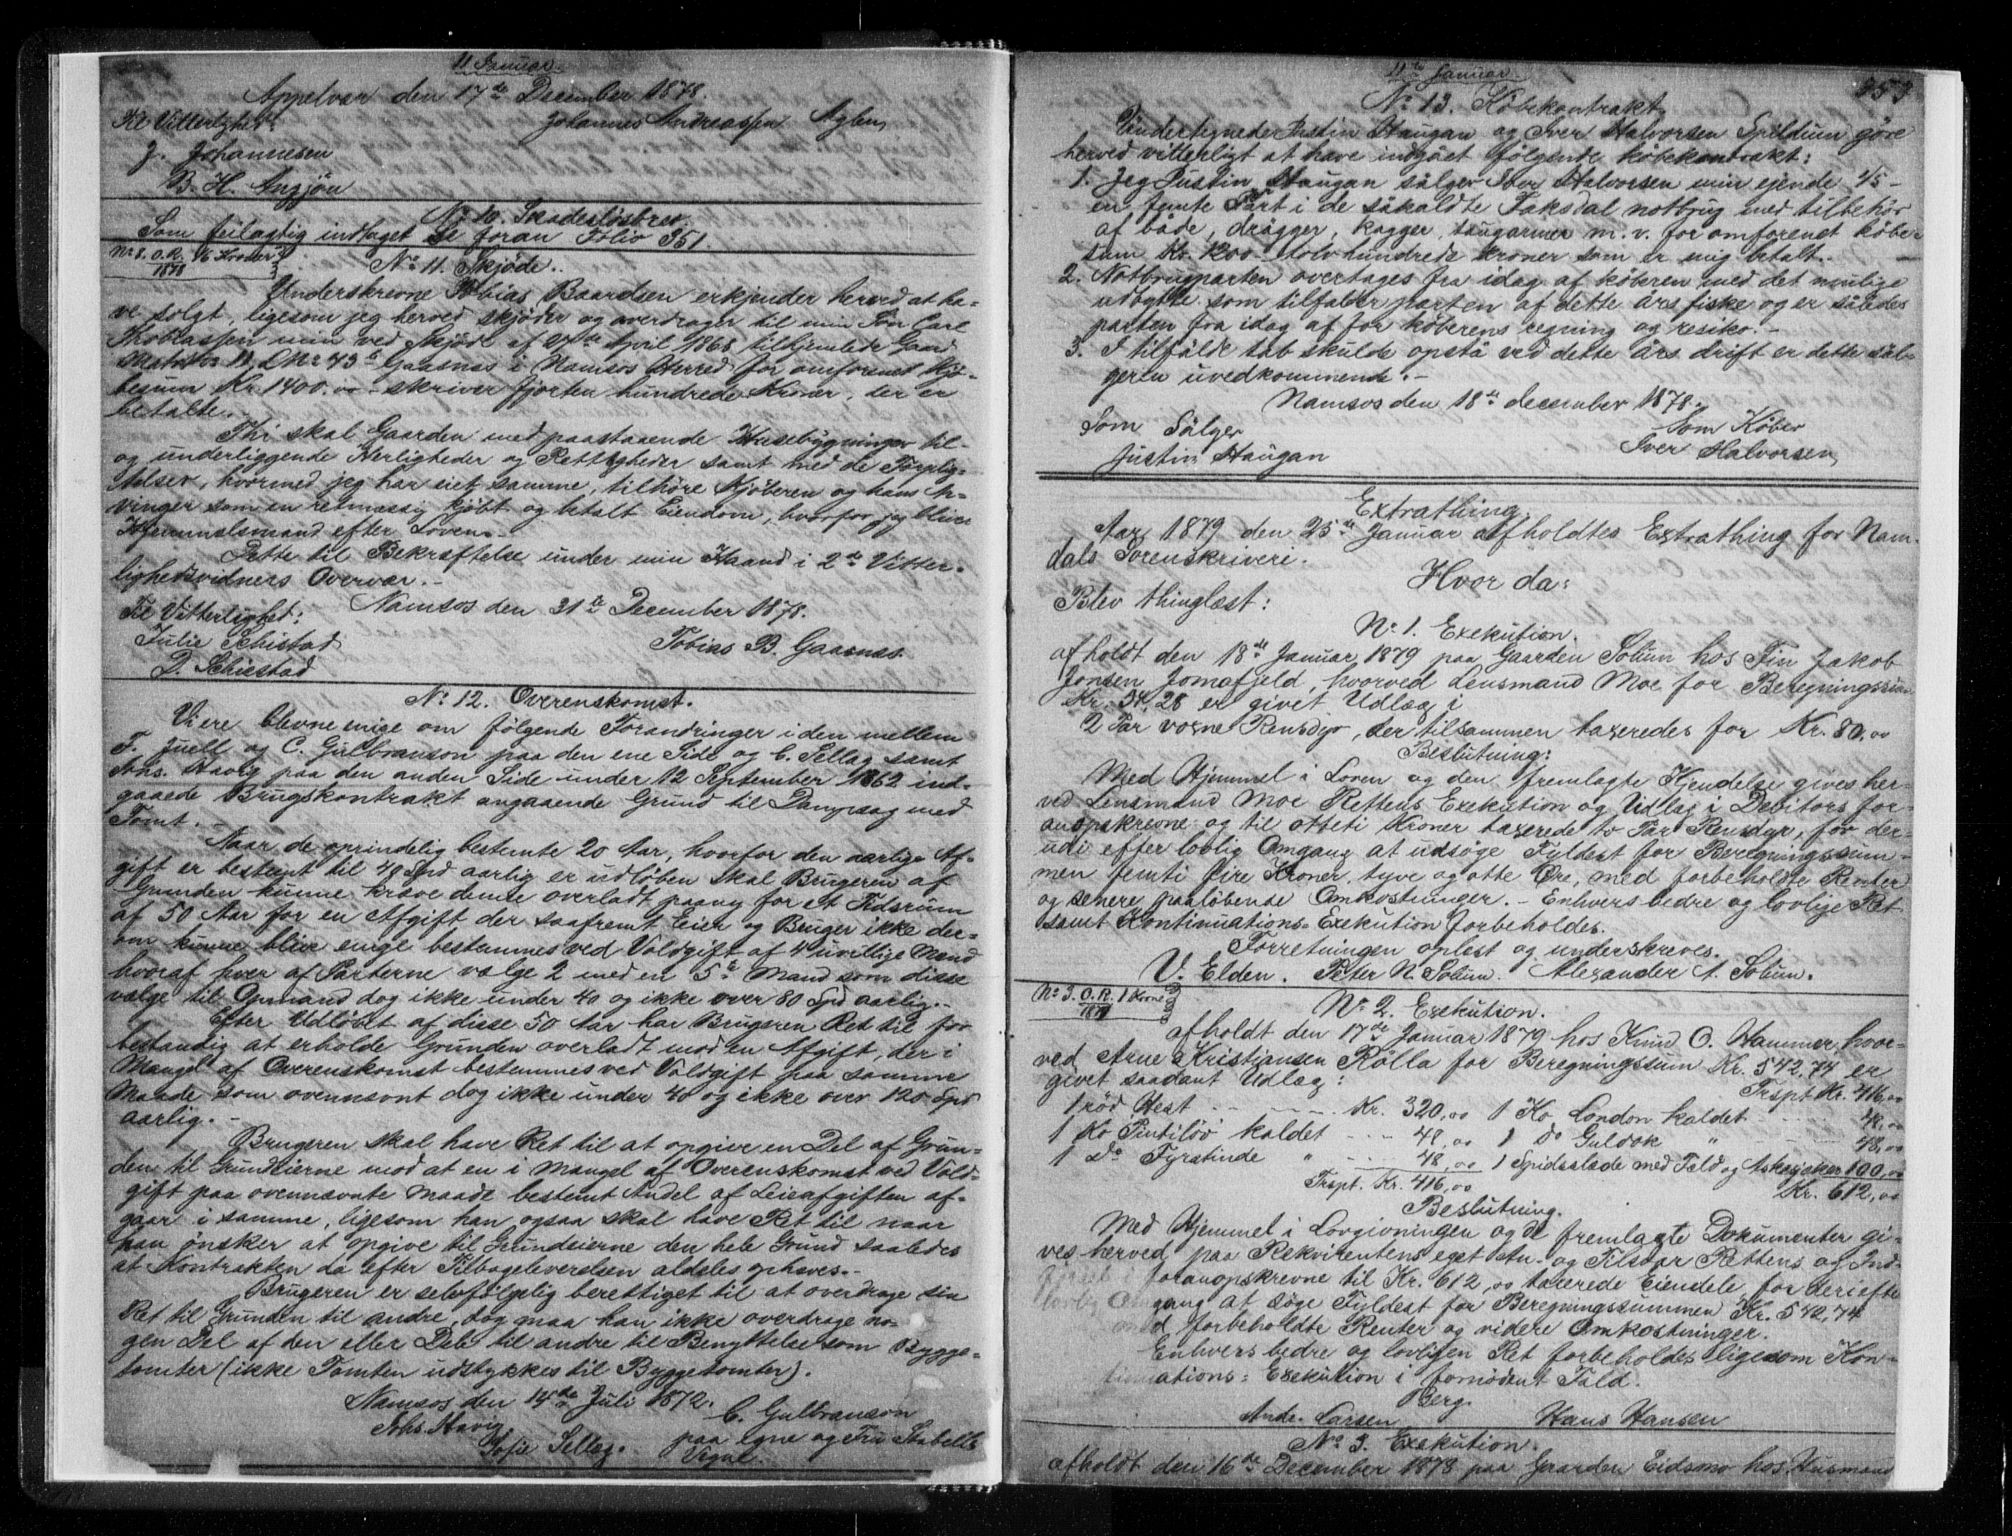 11 Januar.
Appelvær den 17de December 1878.
Til Vitterlighed: Johannes Andreassen Aglen
J. Johannesen
B. H. Angjøn
No 10. Skadesløsbrev.
Som feilagtig indtaget Se foran Folio 351.
No 8. O.R. 1/6 Kroner
1878
No 11. Skjøde.
Underskrevne Tobias Baardsen erkjender herved at ha-
ve solgt, ligesom jeg herved skjøder og overdrager til min Søn Carl
Thobiassen min ved Skjøde af 24de April 1868 tilhjemlede Gaard
Matr No 11, LNr 43b Gaasnæs i Namsos Herred for omforenet Kjø-
besum Kr. 1400.00 - skriver fjorten hundrede Kroner, der er
betalte. -
Thi skal Gaarden med paastaaende Husebygninger til-
og underliggende Herligheder og Rettigheder samt med de Forplig-
telser, hvormed jeg har eiet samme, tilhøre Kjøberen og hans Ar-
vinger som en retmæssig kjøbt og betalt Eiendom, hvorfor jeg bliver
Hjemmelsmand efter Loven. -
Dette til Bekræftelse under min Haand i 2de Vitter-
lighedsvidners Overvær. -
Namsos den 31te December 1878.
Til Vitterlighed:
Julie Schistad Tobias B. Gaasnæs
D. Schiestad
No 12. Overenskomst.
Vi ere blevne enige om følgende Forandringer i den mellem
F. Juell og C. Gulbranson paa den ene Side og C. Sellæg samt
Johs. Havig paa den anden Side under 12 September 1862 ind-
gaaede Brugskontrakt angaaende Grund til Dampsag med
Tomt. -
Naar de oprindelig bestemte 20 Aar, hvorfor den aarlige Af-
gift er bestemt til 40 Spd aarlig er udløben skal Brugeren af
Grunden kunne kræve denne overladt paany for et Tidsrum
af 50 Aar for en Afgift der saafremt Eier og Bruger ikke der-
om kunne blive enige bestemmes ved Voldgift af 4 uvillige Mænd
hvoraf hver af Parterne vælge 2 med en 5te Mand som disse
vælge til Opmand dog ikke under 40 og ikke over 80 Spd aarlig. -
Efter Udløbet af disse 50 Aar har Brugeren Ret til for
bestandig at erholde Grunden overladt mod en Afgift, der i
Mangel af Overenskomst bestemmes ved Voldgift paa samme
Maade som ovennævnt dog ikke under 40 og ikke over 120 Spd
aarlig. -
Brugeren skal have Ret til at opgive en Del af Grun-
den til Grundeierne mod at en i Mangel af Overenskomst ved Vold-
gift paa ovennævnte Maade bestemt Andel af Leieafgiften af-
gaar i samme, ligesom han ogsaa skal have Ret til naar
han ønsker at opgive til Grundeierne den hele Grund saaledes
at Kontrakten da efter Tilbageleverelsen aldeles ophæves. -
Brugeren er selvfølgelig berettiget til at overdrage sin
Ret til Grunden til andre, dog maa han ikke overdrage no-
gen Del af den eller Dele til andre til Benyttelse som Bygge-
tomter (ikke Tomten udstykkes til Byggetomter).
Namsos den 14de Juli 1872.
Johs. Havig C. Gulbranson
Sofie Sellæg. paa egne og Fru Isabella
Vigne.
11te Januar. 353
No 13. Købekontrakt
Undertegnede Justin Haugan og Iver Halvorsen Spildium gøre
herved vitterligt at have indgået følgende købekontrakt:
1. Jeg Justin Haugan sälger Iver Halvorsen min ejende 1/5 -
en femte Part i de såkaldte Faksdal notbrug med tilbehör
af både, drägger, kagger, taugarmer m. v. for omforenet köbe-
sum Kr. 1200 - tolvhundrede kroner som er mig betalt. -
2. Notbrugparten overtages fra idag af køberen med det mulige
udbytte som tilfalder parten af dette års fiske og er således
parten fra idag af for køberens regning og resiko. -
3. I tilfälde tab skulde opstå ved dette års drift er dette säl-
geren uvedkommende. -
Namsos den 18de december 1878.
Som Sälger Som Köber
Justin Haugan Iver Halvorsen
Extrathing.
Aar 1879 den 25de Januar afholdtes Extrathing for Nam-
dals Sorenskriveri.
Hvor da:
Blev thinglæst:
No 1. Exekution.
afholdt den 18de Januar 1879 paa Gaarden Solum hos Fin Jakob
Jonsen Jomafjeld, hvorved Lensmand Moe for Beregningssum
Kr. 54,28 er givet Udlæg i
2 Par voxne Rensdyr, der tilsammen taxeredes for Kr. 80,00
Beslutning:
Med Hjemmel i Loven og den fremlagte Kjendelse gives her-
ved Lensmand Moe Rettens Exekution og Udlæg i Debitors for-
anopskrevne og til otteti Kroner taxerede to Par Rensdyr, for der-
udi efter lovlig Omgang at udsøge Fyldest for Beregningssum-
men femti fire Kroner, tyve og otte Øre, med forbeholdte Renter
og senere paaløbende Omkostninger. - Enhvers bedre og lovlige Ret
samt Kontinuations-Exekution forbeholdes.
Forretningen oplæst og underskreves.
V. Elden. Peter N. Solum. Alexander A. Solum.
No 3. O.R. 1 Krone
1879
No 2. Exekution.
afholdt den 17de Januar 1879 hos Knud O. Hammer, hvor-
ved Arne Kristiansen Rølla for Beregningssum Kr. 542,74 er
givet saadant Udlæg: Trspt Kr. 416,00
1 rød Hest - - - - Kr. 320,00 1 Ko London kaldet - - 48,00
1 Ko Pintilø kaldet - - - 48,00 1 Do Guldok " - - 48,00
1 Do Fyratinde " - - 48,00 1 Spidsslæde med Fæld og Askagjeker 100,00
Trspt. Kr. 416,00 Kr. 612,00
Beslutning.
Med Hjemmel i Lovgivningen og de fremlagte Dokumenter gi-
ves herved paa Rekvirentens eget An- og Tilsvar Rettens og Ind-
førsel i foranopskrevne til Kr. 612,00 taxerede Eiendele, for derefter
lovlig Omgang at søge Fyldest for Beregningssummen Kr. 542,74
med forbeholdte Renter og videre Omkostninger.
Enhvers bedre og lovligen Ret forbeholdes ligesom Kon-
tinuations-Exekution i fornødent Fald.
Berg.
Andr. Larsen Hans Hansen
No 3. Exekution.
afholdt den 16de December 1878 paa Gaarden Eidsmo hos Husmand